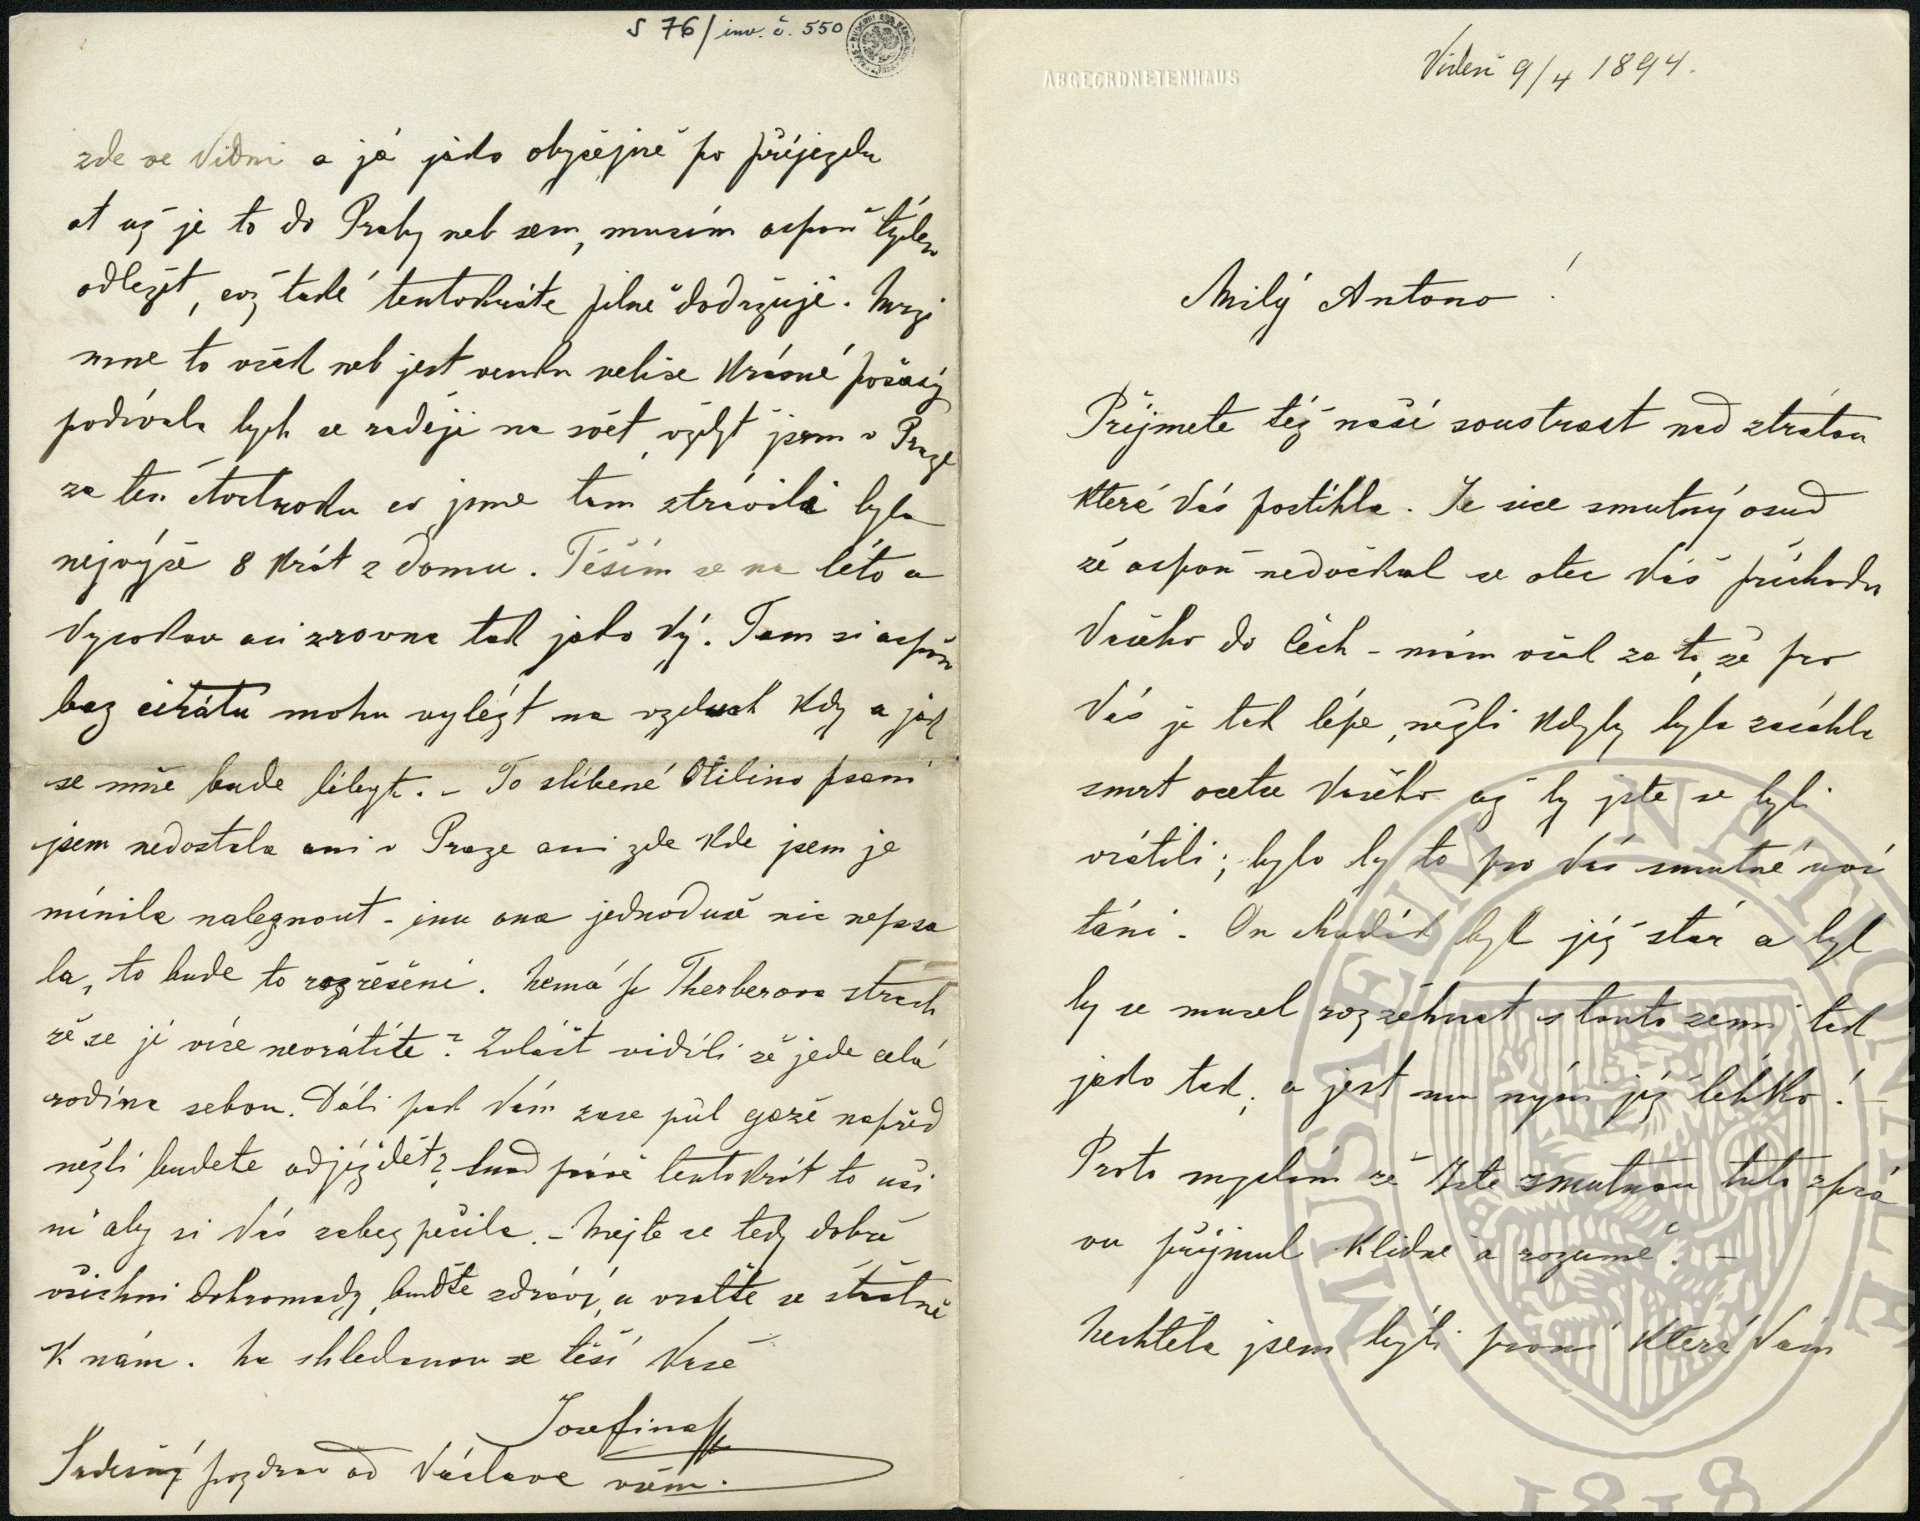 ABGEORDNETENHAUS
Vídeň 9/4 1894.
Milý Antono!
Přijmete též naší soustrast nad ztrátou
která Vás postihla. Je sice smutný osud
že aspoň nedočkal se otec Váš příchodu
Vašeho do Čech - mám však za to, že pro
Vás je tak lépe, nežli kdyby byla zasáhla
smrt otce Vašeho až by jste se byli
vrátili; bylo by to pro Vás smutné uví
tání. On chudák byl již stár a byl
by se musel rozžehnat s touto zemí tak
jako tak, a jest mu nyní již lehko! -
Proto myslím že Jste smutnou tuto zprá
vu přijmul klidně a rozumě. -
Nechtěla jsem býti první která Vám
S 76/inv. č. 550
zde ve Vídni a já jako obyčejně po příjezdu
ať už je to do Prahy neb sem, musím aspoň týden
odležet, což také tentokráte pilně dodržuji. Mrzí
mne to však neb jest venku velice krásné počasý
podívala bych se raději na svět, vždyť jsem v Praze
za ten čtvrtroku co jsme tam strávili byla
nejvýše 8 krát z domu. Těším se na léto a
Vysokou asi zrovna tak jako Vý. Tam si aspoň
bez citátu mohu vylézt na vzduch kdy a jak
se mně bude líbyt. - To slíbené Otilino psaní
jsem nedostala ani v Praze ani zde kde jsem je
mínila naleznout - inu ona jednoduše nic nepsa
la, to bude to rozřešení. Nemá p. Therberova strach
že se jí více nevrátíte? Zvlášť vidíli že jede celá
rodina sebou. Dáli pak Vám zase půl gaže napřed
nežli budete odjíždět? Snad práve tentokrát to uči
ní aby si Vás zabezpečila. - Mějte se tedy dobře
všichni dohromady, buďte zdrávý, a vraťte se šťastně
k nám. Na shledanou se těší Vaše
Josefina
Srdečný pozdrav od Václava vám.
MUSAEUM NATIONALE
1818